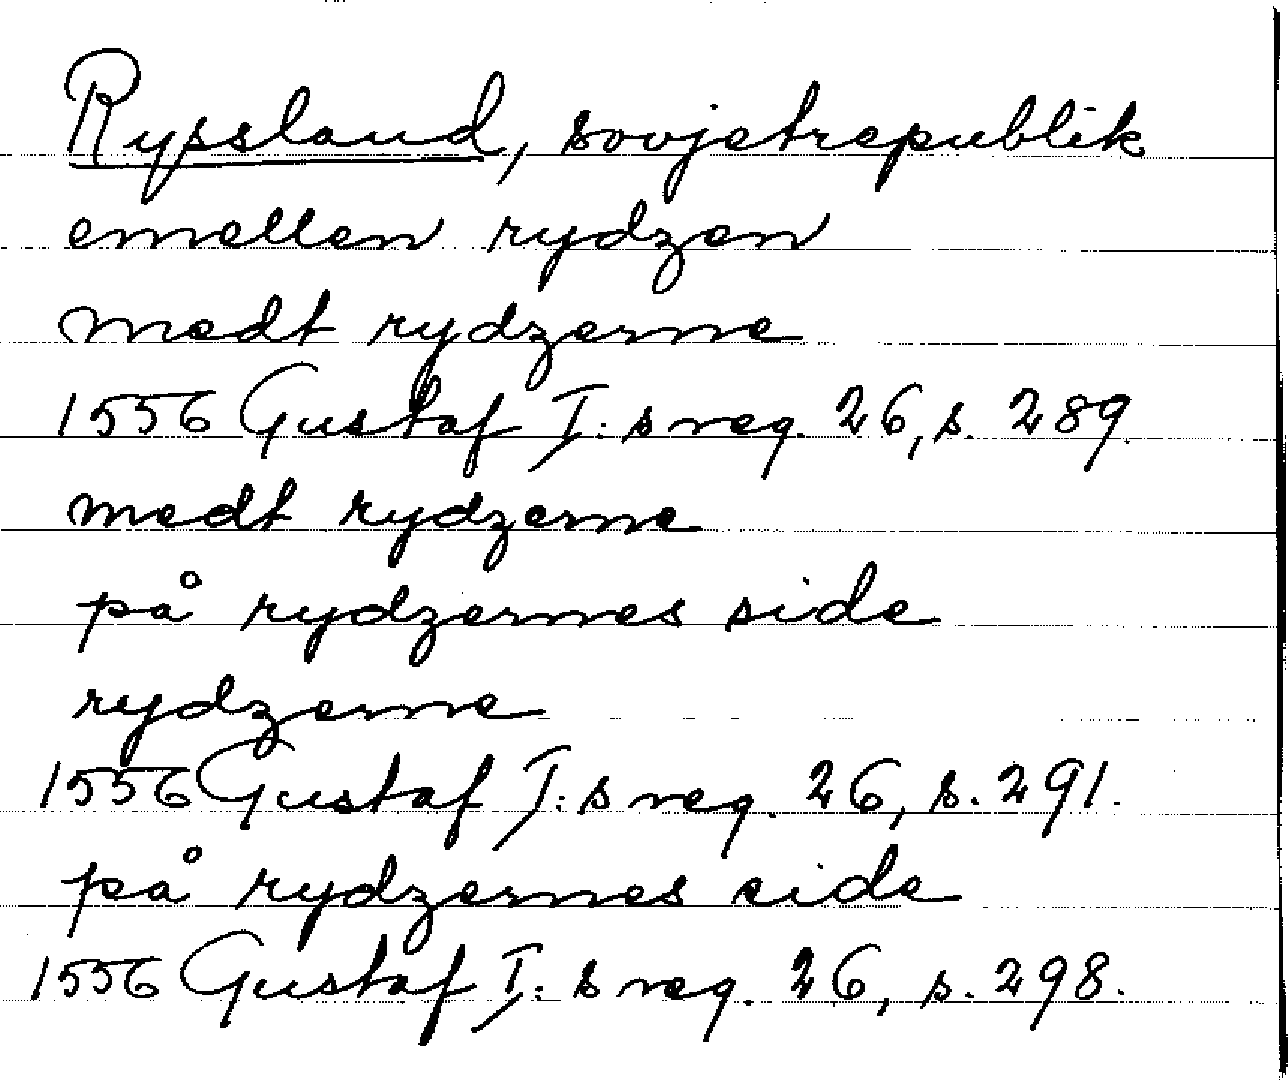 Ryssland, sovjetrepublik
emellen rydzen
medt rydzerne
1556 Gustaf I:s reg. 26, s. 289.
medt rydzerne
på rydzernes side
rydzerne
1556 Gustaf I:s reg. 26, s. 291.
på rydzernes side
1556 Gustaf I:s reg. 26, s. 298.